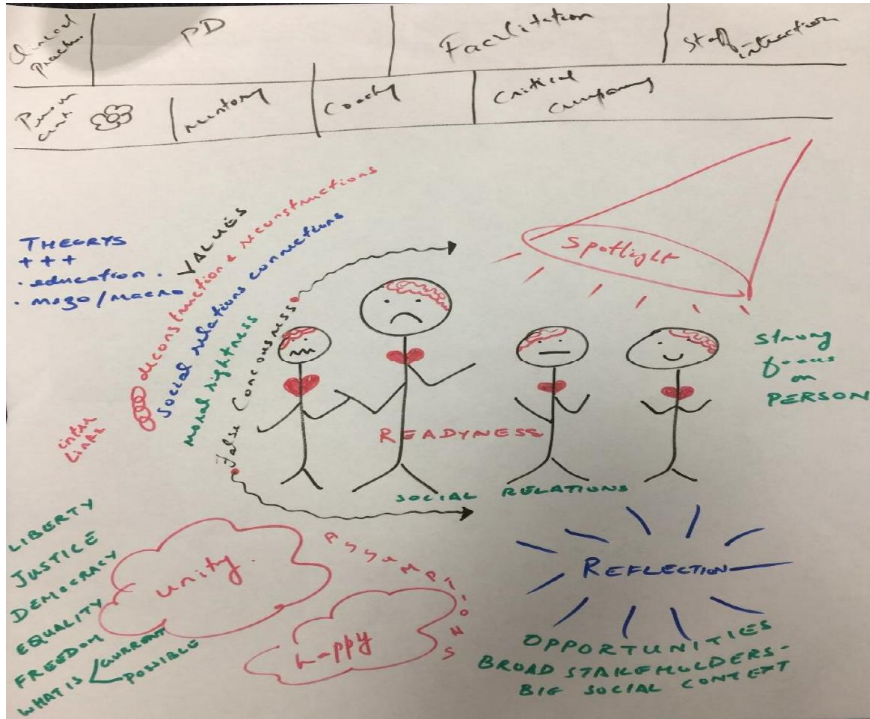 Clinical
PD
Facilitation
Staff
interaction
Person
cent
mentoring
Critical
Company
THEORYS
+++
· education.
· mezo/macro
VALUES
deconstruction & reconstructions
social relations connections
moral rightness
False Conciousness
inter
LINKS
Spotlight
Strong
focus
on
PERSON
READYNESS
SOCIAL RELATIONS
LIBERTY
JUSTICE
DEMOCRACY
EQUALITY
FREEDOM
WHAT IS
CURRENT
POSIBLE
unity.
ASSUMPTIONS
happy
REFLECTION
OPPORTUNITIES
BROAD STAKEHOLDERS-
BIG SOCIAL CONTEXT